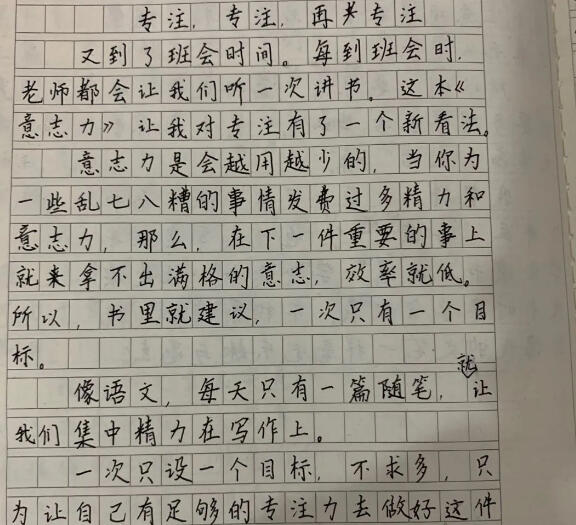 专注，专注，再关专注
又到了班会时间。每到班会时，
老师都会让我们听一次讲书。这本《
意志力》让我对专注有了一个新看法。
意志力是会越用越少的，当你为
一些乱七八糟的事情发费过多精力和
意志力，那么，在下一件重要的事上
就来拿不出满格的意志，效率就低。
所以，书里就建议，一次只有一个目
标。
像语文，每天只有一篇随笔，就让
我们集中精力在写作上。
一次只设一个目标，不求多，只
为让自己有足够的专注力去做好这件